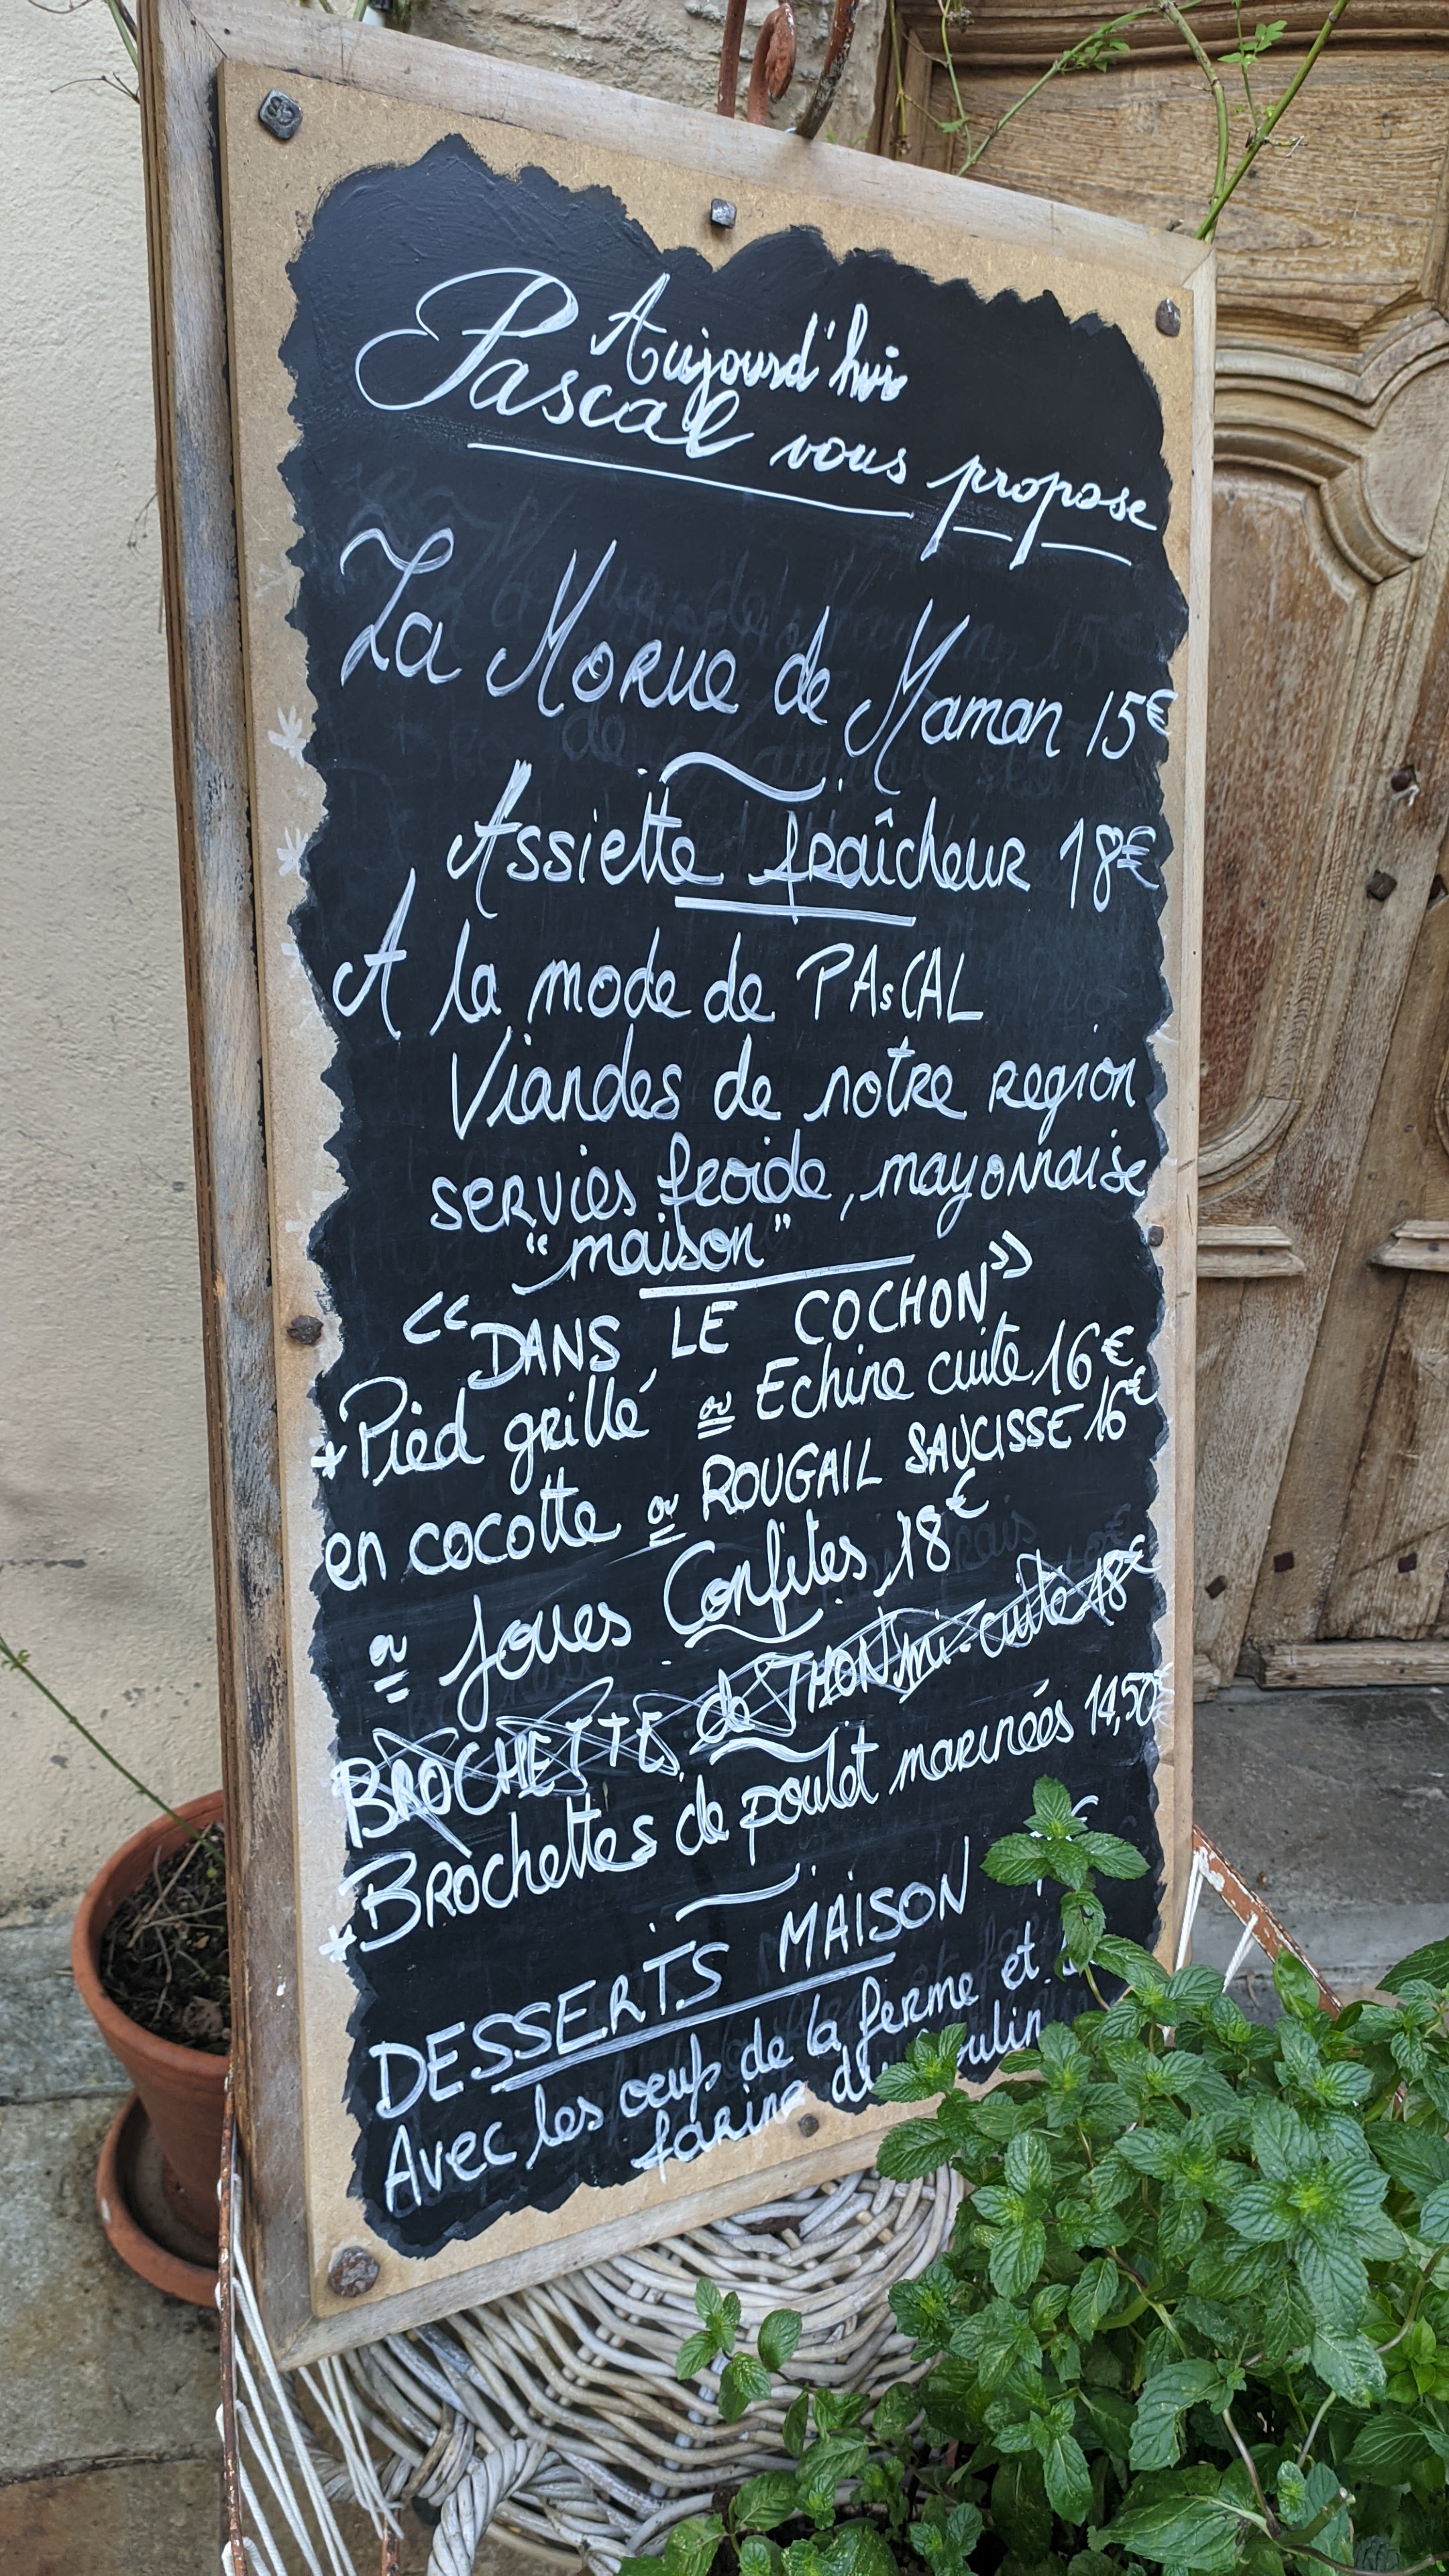 Aujourd'hui
Pascal vous propose
La Morue de Maman 15€
Assiette fraîcheur 18€
A la mode de PAsCAL
Viandes de notre region
servies froide, mayonnaise
"maison"
<< DANS LE COCHON >>
* Pied grillé ou Echine cuite 16€
en cocotte ou ROUGAIL SAUCISSE 16€
ou joues Confites 18€
BROCHETTE de THON mi-cuite 18€
* Brochettes de poulet marinées 14,50€
DESSERTS MAISON €
Avec les œufs de la ferme et
farine du